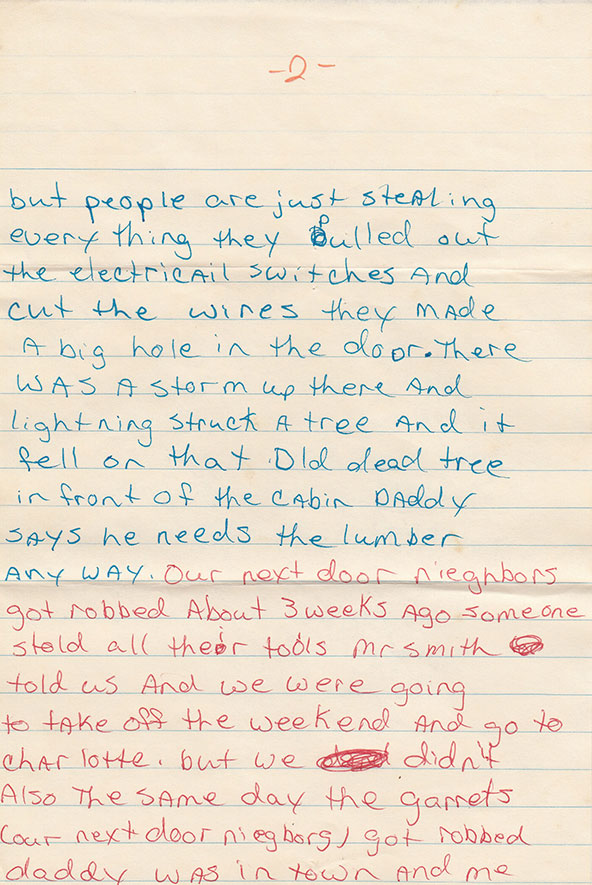 -2-
but people are just steALing
every thing they pulled out
the electricAil switches And
cut the wires they mAde
A big hole in the door. There
WAS A storm up there And
lightning struck A tree And it
fell on that Old dead tree
in front of the cAbin DAddy
sAys he needs the lumber
Any WAY. Our next door nieghbors
got robbed About 3 weeks Ago someone
stold all their tools mr smith
told us And we were going
to tAke off the weekend And go to
chAr lotte. but we didn't
Also The sAme day the garrets
(our next door niegbors) got robbed
daddy wAs in town And me